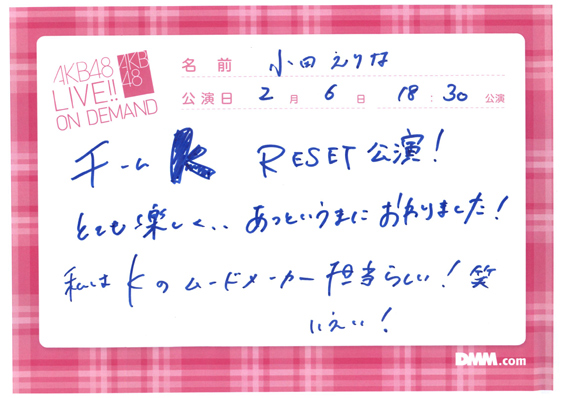 AKB48
LIVE!!
ON DEMAND
AKB
48
名前 小田えりな
公演日 2月6日 18:30公演
チームK RESET公演!
とても楽しく、、あっというまにおわりました!
私はKのムードメーカー担当らしい!笑
いえい!
DMM.com